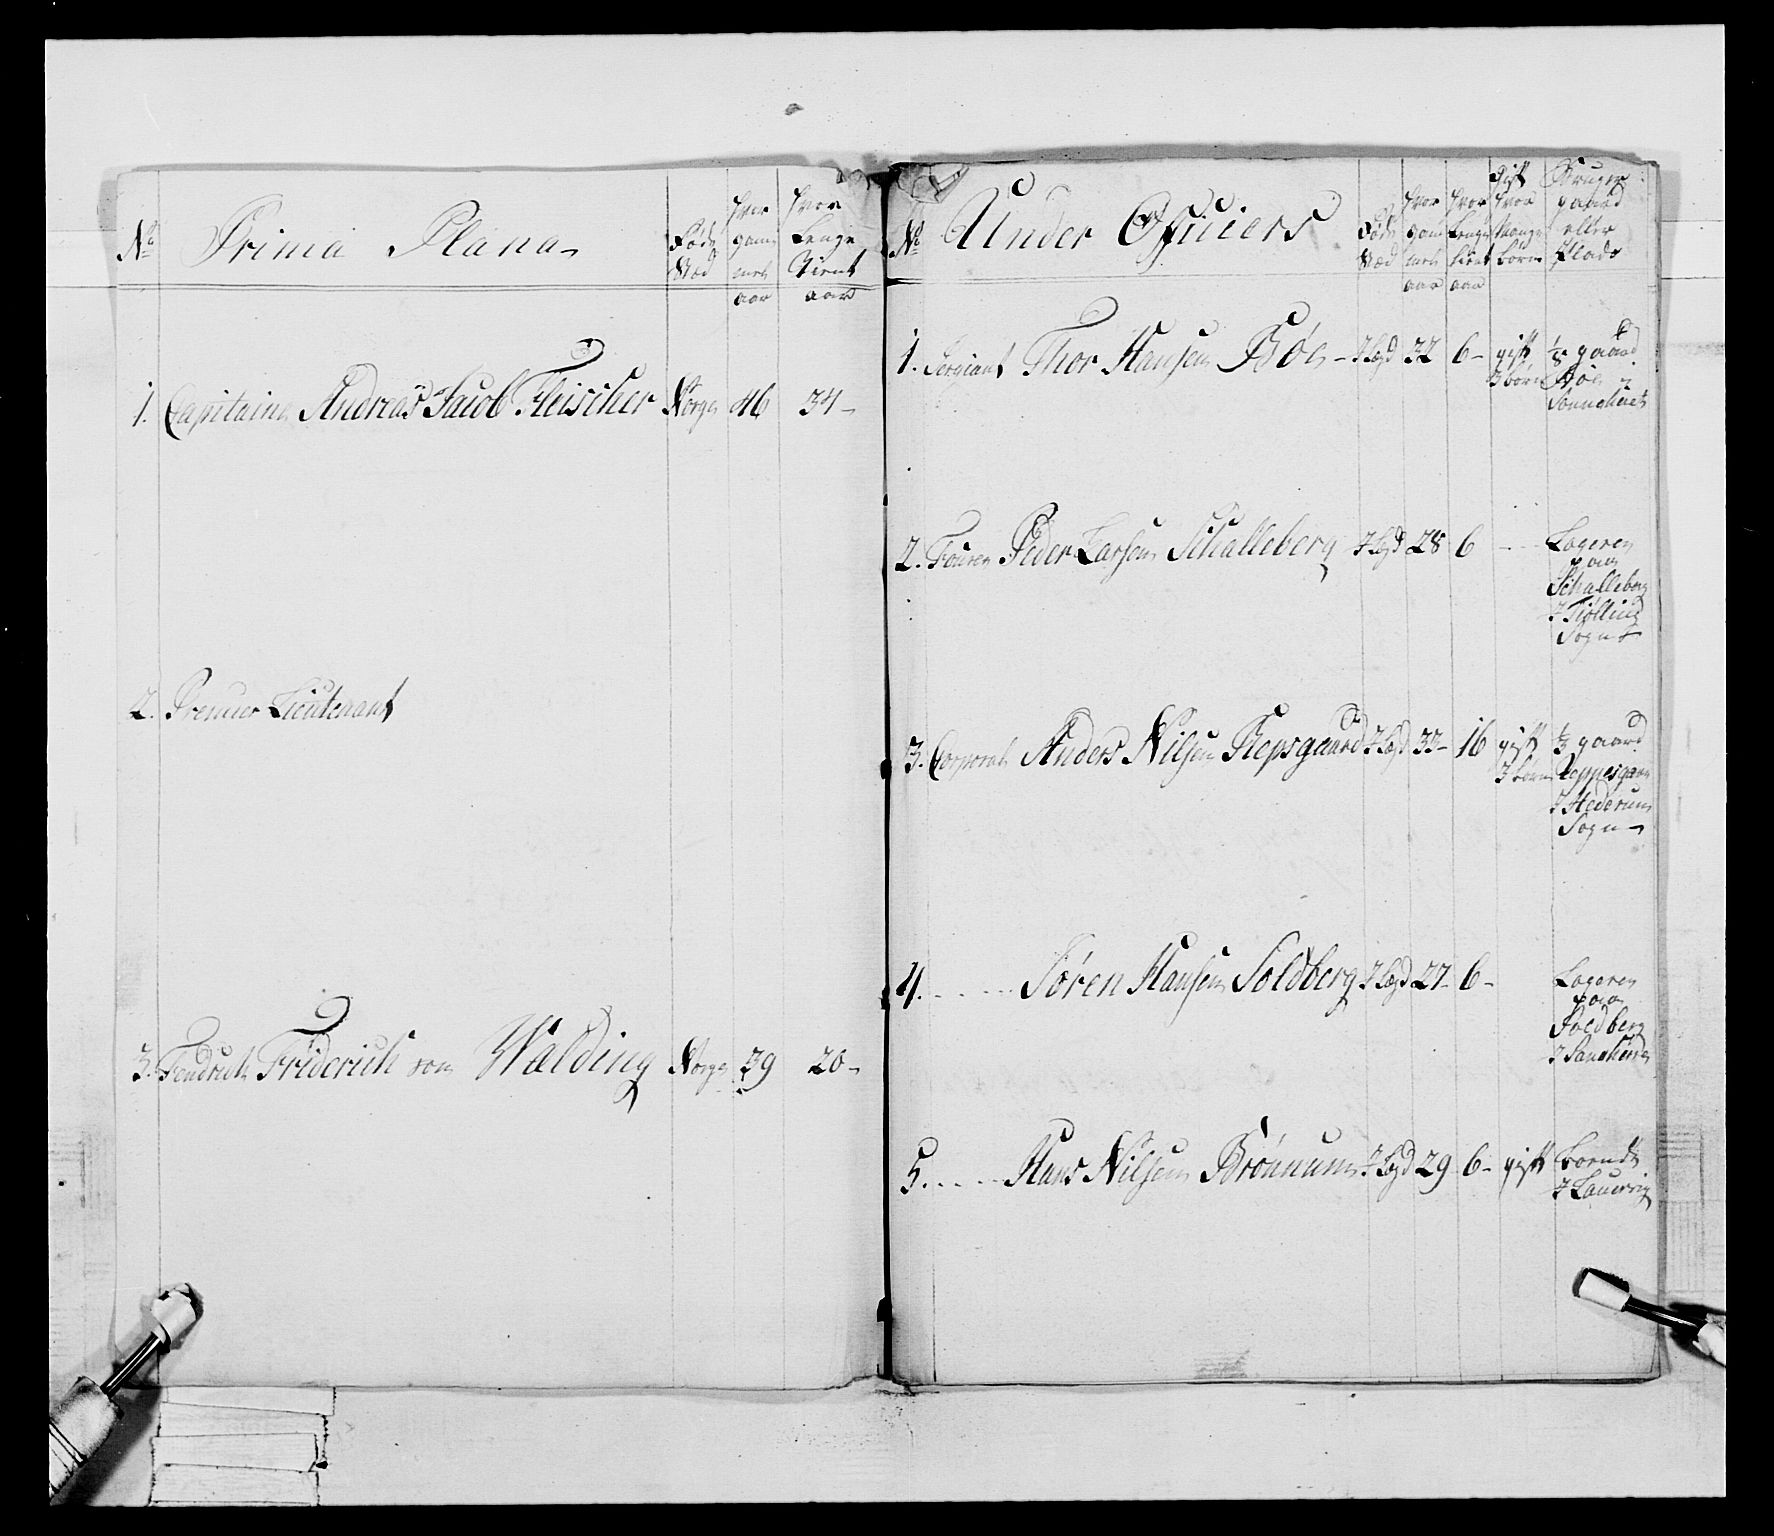 No Prima Plana Føde Stæd hvor gam̅el aar hvor Lenge Tient aar
1. Capitaine Andreas Jacob Fleischer Norge 46 34-
2. Premier Lieutenant
3. Fendrich Friderich von Walding Norge 39 20-
No Under Officiers Føde Stæd hvor gam̅el aar hvor Lenge tient aar gift hvor Mange børn Bruger gaard eller Plads
1. Sergiant Thor Hansen Bøe - J Lægd 32 6- gift 3 børn ½ gaard Bøe i
2. Fourer Peder Larsen Schalleberg J Lægd 28 6 - - - Logerer paa Schalleberg J Tiølling Sogn
3. Corporal Anders Nilsen Repsgaard J Lægd 33- 16 gift 3 børn ½ gaard J Hederum Sogn
4. - - - Søren Hansen Soldberg J Lægd 27- 6- Logerer paa Soldberg J Sandherred
5. - - - Hans Nilsen Brønnum J Lægd 29 6- gift boendt J Lauervig